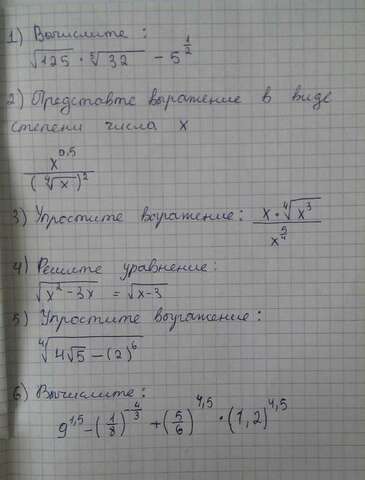 1) Вычислите:
√125 · ⁵√32 − 5^(1/2)
2) Представте выражение в виде
степени числа x
x^0,5 / (⁴√x)²
3) Упростите воуражение: x · ⁴√x³ / x^(3/4)
4) Решите уравнение:
√x² − 3x = √x−3
5) Упростите воуражение:
⁴√4√5 − (2)⁶
6) Вычислите:
9^1,5 − (1/8)^(−4/3) + (5/6)^4,5 · (1,2)^4,5